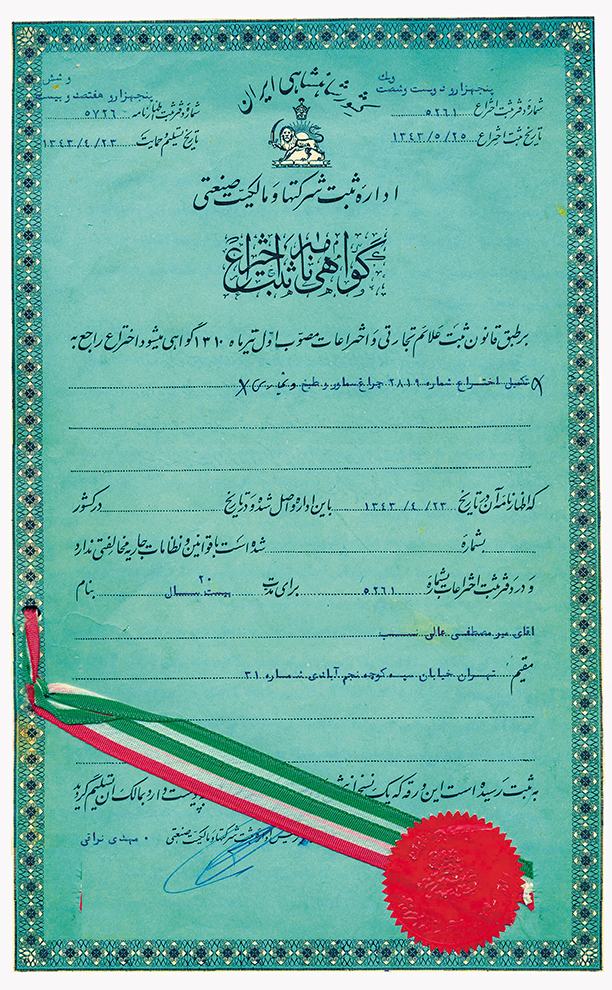 کشور شاهنشاهی ایران
ویک
پنجهزار و دویست و شصت
شماره دفتر ثبت اختراع ۵۲۶۱
تاریخ ثبت اختراع ۱۳۴۳/۵/۲۵
و شش
پنجهزار و هفتصد و بیست
شماره دفتر ثبت اظهارنامه ۵۷۲۶
تاریخ تسلیم و حمایت ۱۳۴۳/۴/۲۳
اداره ثبت شرکتها و مالکیت صنعتی
گواهی نامه ثبت اختراع
بر طبق قانون ثبت علائم تجارتی و اختراعات مصوب اول تیر ماه ۱۳۱۰ گواهی میشود اختراع راجع به
تکمیل اختراع شماره ۲۸۱۹ چراغ سماور و طبخ و
که اظهارنامه آن در تاریخ ۱۳۴۳/۴/۲۳ باین اداره واصل شده و در تاریخ در کشور
بشماره شده است با قوانین و نظامات جاریه مخالفتی ندارد
و در دفتر ثبت اختراعات بشماره ۵۲۶۱ برای مدت ۲۰ بیست سال بنام
اقای میر مصطفی عالی نسب
مقیم تهران خیابان سپه کوچه نجم آبادی شماره ۳۱
به ثبت رسیده است این ورقه که یک نسخه پیوست دارد بمالک آن تسلیم گردید
رئیس اداره ثبت شرکتها و مالکیت صنعتی مهدی نراقی